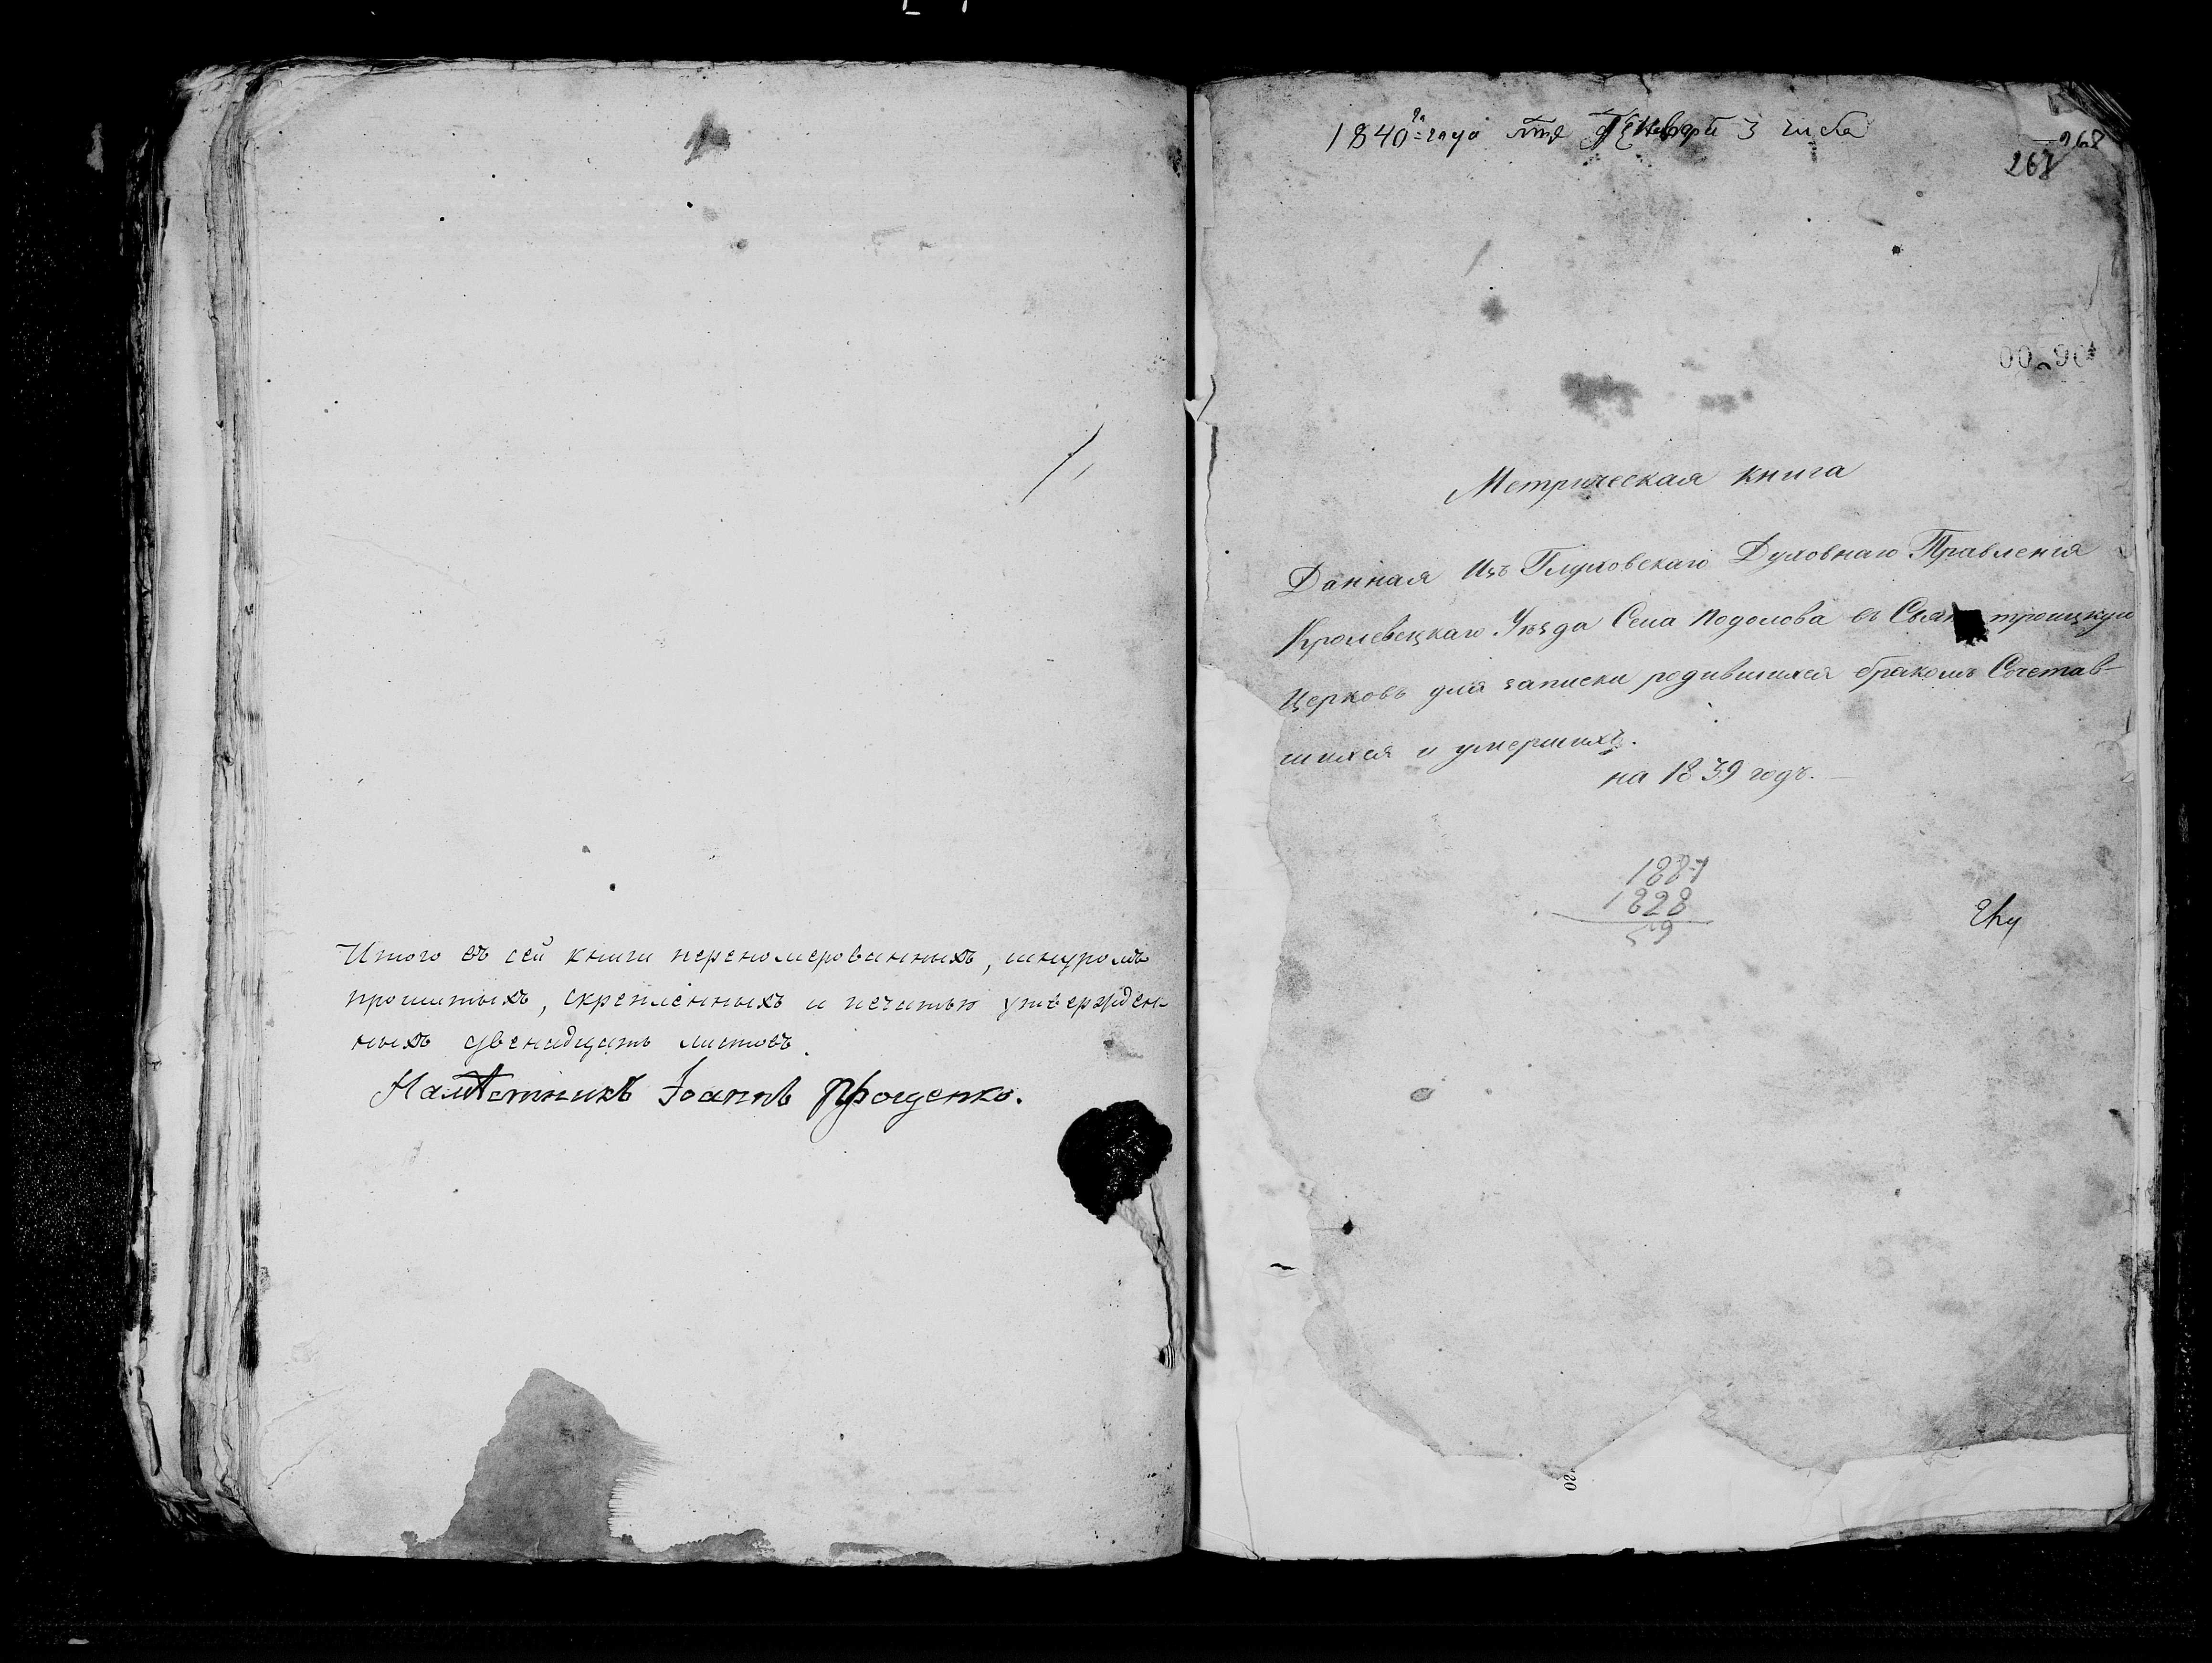 Итого въ сей книги переномерованныхъ, шнуромъ
прошитыхъ, скрепленныхъ и печатью утвержден-
ныхъ двенадцать листовъ.
Наместникъ Іоаннъ Проценко.
1840го года мца Генваря 3 числа
268
267
Метрическая книга
Данная Изъ Глуховскаго Духовнаго Правленія
Кролевецкаго Уѣзда Села Подолова въ Свято троицкую
Церковь для записки родившихся бракомъ Сочетав-
шихся и умершихъ.
на 1839 годъ.
1887
1828
59